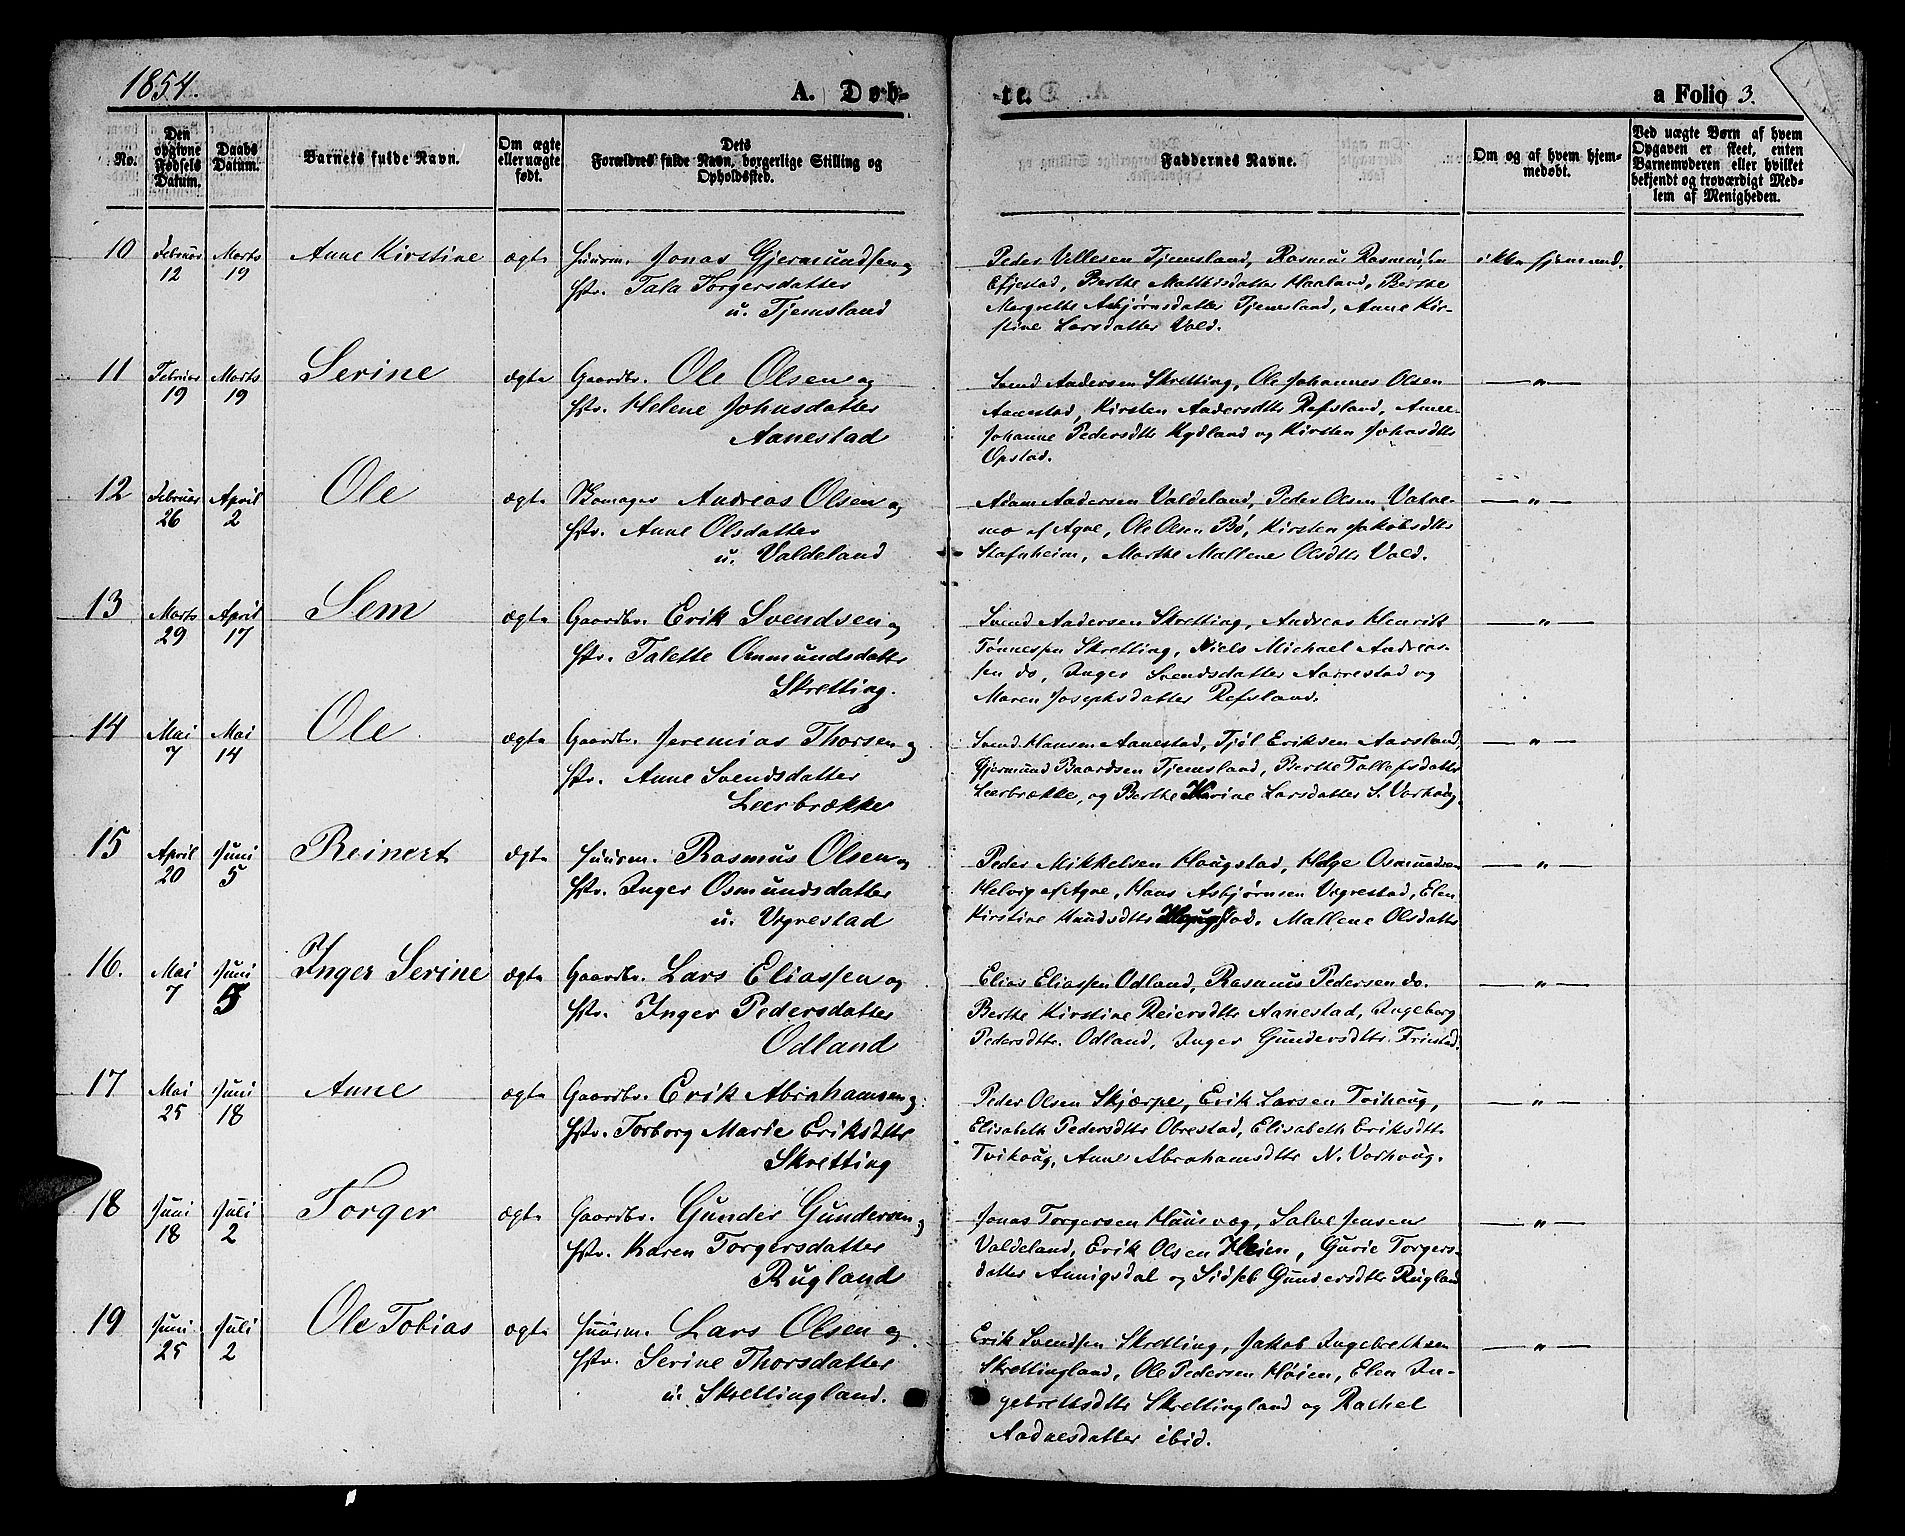 1854.
A. Døb-
te.
a Folio 3.
No.
Den opgivne Fødsels Datum.
Daabs Datum.
Barnets fulde Navn.
Om ægte eller uægte født.
Dets Forældres fulde Navn, borgerlige Stilling og Opholdssted.
Faddernes Navne.
Om og af hvem hjemmedøbt.
Ved uægte Børn af hvem Opgaven er skeet, enten Barnemoderen eller hvilket bekjendt og troværdigt Medlem af Menigheden.
10 Februar 12 Marts 19 Anne Kirstine ægte Huusm. Jonas Gjermundsen og
Hstr. Tala Torgersdatter
u. Tjemsland
Peder Villesen Tjemsland, Rasmus Rasmussen ikke hjemmed.
Efjestad, Berthe Mathisdatter Haaland, Berthe
Margrethe Asbjørnsdatter Tjemsland, Anne Kir-
stine Larsdatter Vold.
11 Februar 19 Marts 19 Serine ægte Gaardbr. Ole Olsen og
Hstr. Helene Johnsdatter
Aanestad
Svend Andersen Skretting, Ole Johannes Olsen — " —
Aanestad, Kirsten Andersdttr Refsland, Anne
Johanne Pedersdttr Kydland og Kirsten Johnsdttr
Opstad.
12 Februar 26 April 2 Ole ægte Andreas Olsen og
Hstr. Anne Olsdatter
u. Valdeland
Adam Andersen Valdeland, Peder Olsen Vatne- — " —
mo af Agne, Ole Olsen Bø, Kirsten Jakobsdttr
Stafnheim, Marthe Mallene Olsdttr Vold.
13 Marts 29 April 17 Sem ægte Gaardbr. Erik Svendsen og
Hstr. Talette Ommundsdattr
Skretting.
Svend Andersen Skretting, Andreas Henrik — " —
Tønnessen Skretting, Niels Michael Andreas-
sen do, Inger Svendsdatter Aarrestad og
Maren Josephsdatter Refsland.
14 Mai 7 Mai 14 Ole ægte Gaardbr. Jeremias Thorsen og
Hstr. Anne Svendsdatter
Leerbrække
Svend Hansen Aanestad, Tjøl Eriksen Aarsland, — " —
Gjermund Baardsen Tjemsland, Berthe Tollefsdatter
Leerbrække, og Berthe Karine Larsdatter S. Varhoug.
15 April 20 Juni 5 Reinert ægte Huusm. Rasmus Olsen og
Hstr. Inger Osmundsdatter
u. Vgrestad
Peder Mikkelsen Hougstad, Helge Osmundsen — " —
Helvig af Agne, Hans Asbjørnsen Vigrestad, Elen
Kirstine Knudsdttr Hougstad, Mallene Olsdatter
16. Mai 7 Juni 5 Inger Serine ægte Gaardbr. Lars Eliassen og
Hstr. Inger Pedersdatter
Odland
Elias Eliassen Odland, Rasmus Pedersen do. — " —
Berthe Kirstine Reiersdttr Aanestad, Ingeborg
Pedersdttr. Odland, Inger Gundersdttr. Friestad.
17 Mai 25 Juni 18 Anne ægte Gaardbr. Erik Abrahamsen og
Hstr. Torborg Marie Eriksdttr
Skretting
Peder Olsen Skjærpe, Erik Larsen Tvihoug, — " —
Elisabeth Pedersdttr Obrestad, Elisabeth Eriksdttr
Tvihoug, Anne Abrahamsdttr N. Varhoug.
18 Juni 18 Juli 2 Torger ægte Gaardbr. Gunder Gundersen og
Hstr. Karen Torgersdatter
Rugland
Jonas Torgersen Hausvæg, Salve Jensen — " —
Valdeland, Erik Olsen Heien, Gurie Torgers-
datter Annigsdal og Sidsel Gundersdttr Rugland
19 Juni 25 Juli 2 Ole Tobias ægte Huusm. Lars Olsen og
Hstr. Serine Thorsdatter
u. Skrettingland.
Erik Svendsen Skretting, Jakob Ingebrethsen — " —
Skrettingland, Ole Pedersen Høien, Elen In-
gebrettsdttr Skrettingland og Rachel
Aadnesdatter ibid.